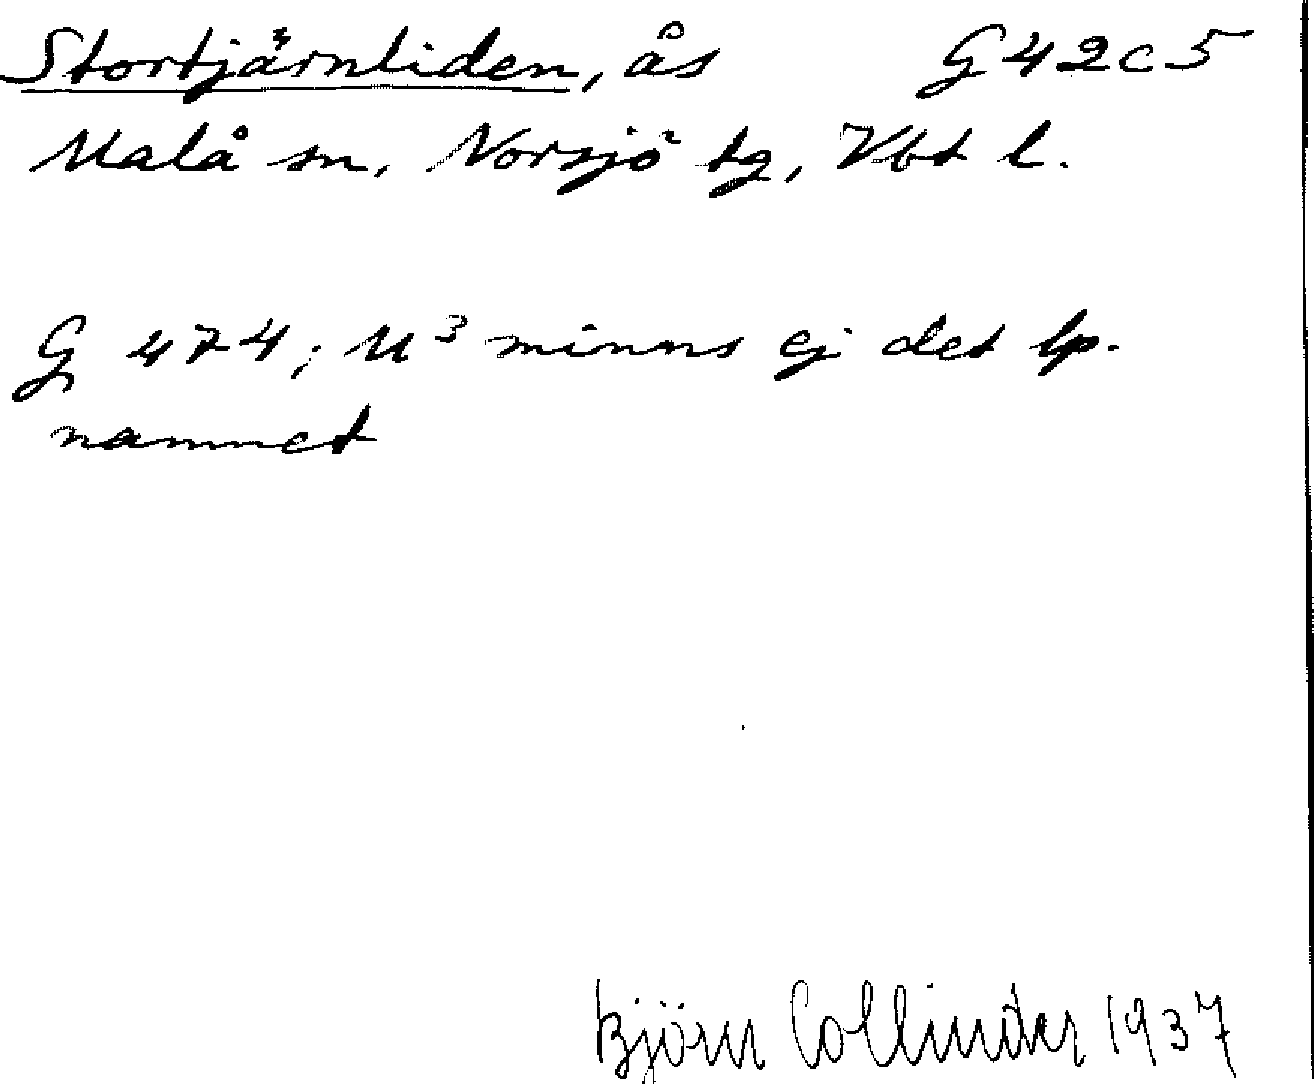 Stortjärnliden, ås G42c5
Malå sn, Norsjö tg, Vbt l.
G 474; M³ minns ej det lp.
namnet
Björn Collinder 1937